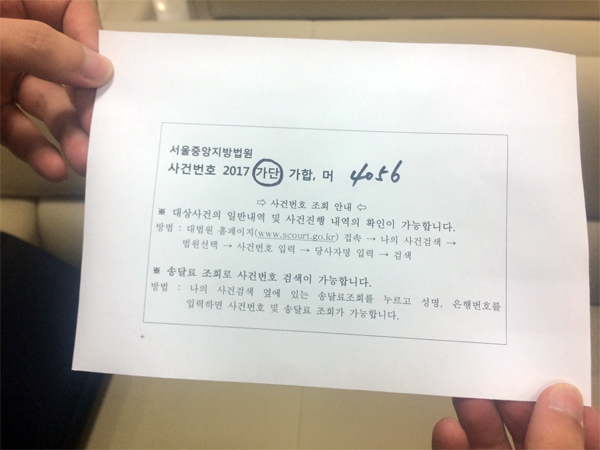 서울중앙지방법원
사건번호 2017 가단 가합, 머 4056
⇨ 사건번호 조회 안내 ⇦
※ 대상사건의 일반내역 및 사건진행 내역의 확인이 가능합니다.
방법 : 대법원 홈페이지(www.scourt.go.kr) 접속 → 나의 사건검색 →
법원선택 → 사건번호 입력 → 당사자명 입력 → 검색
※ 송달료 조회로 사건번호 검색이 가능합니다.
방법 : 나의 사건검색 옆에 있는 송달료조회를 누르고 성명, 은행번호를
입력하면 사건번호 및 송달료 조회가 가능합니다.